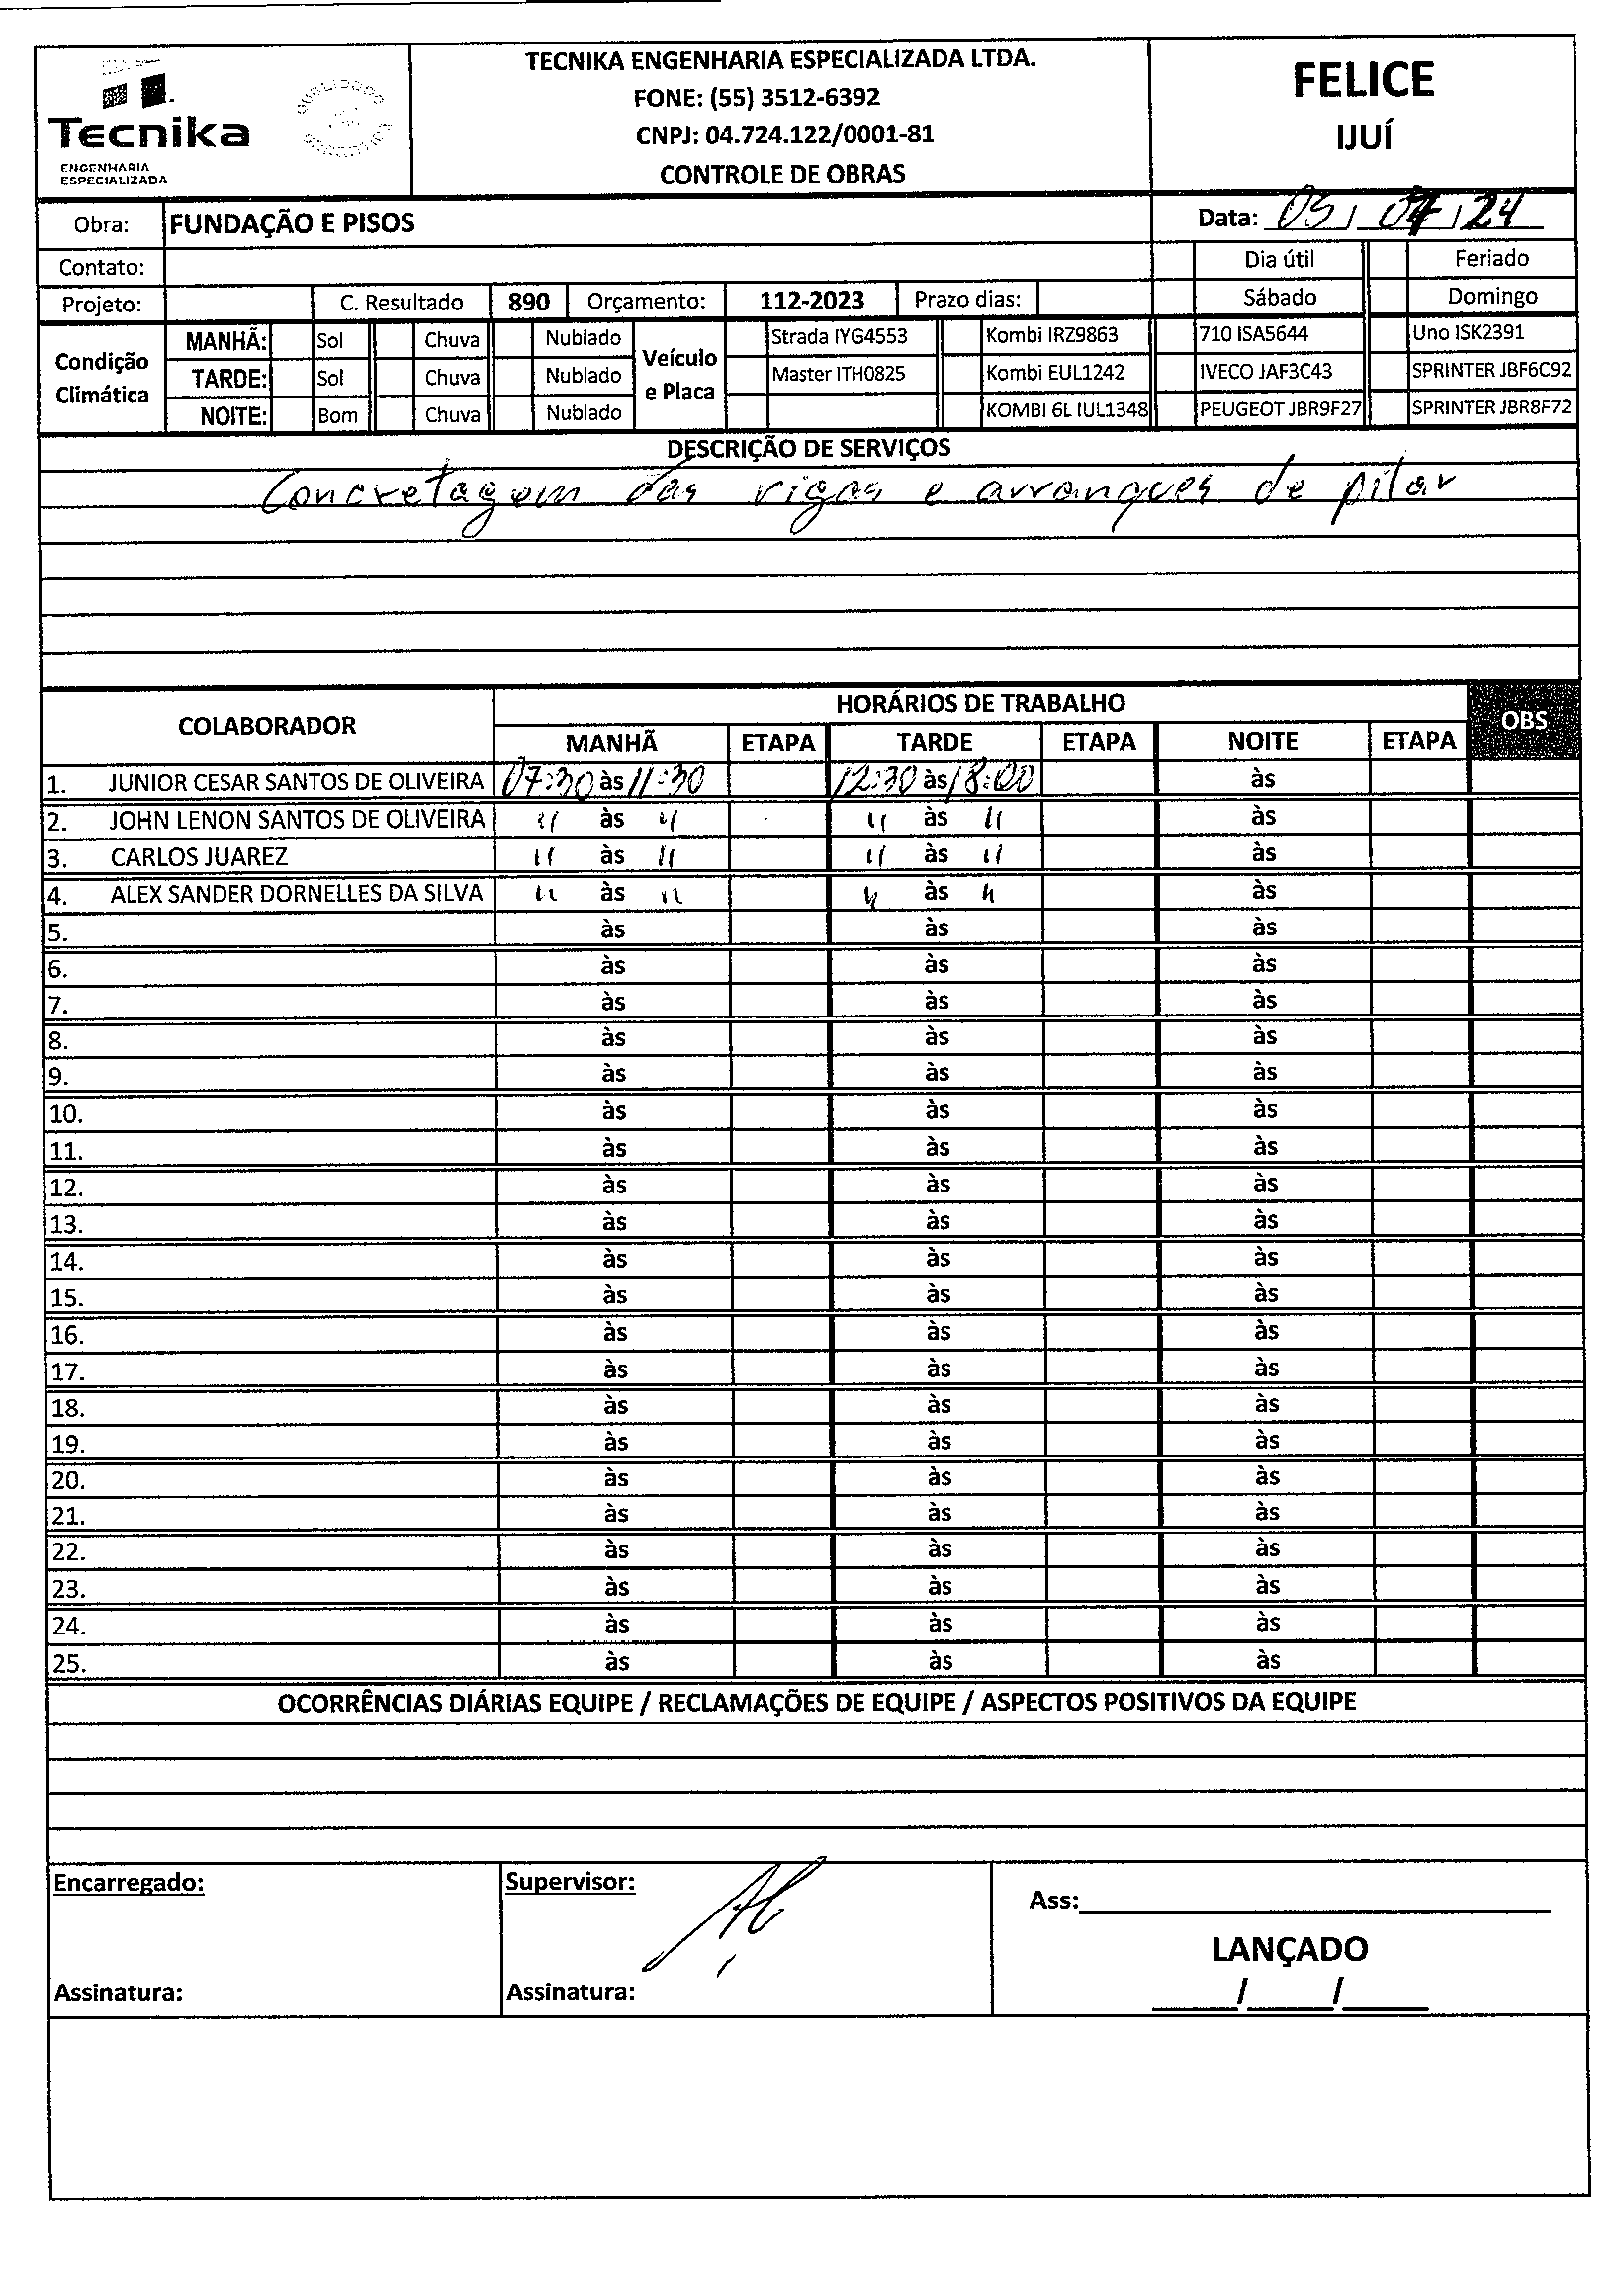 Tecnika
ENGENHARIA
ESPECIALIZADA
TECNIKA ENGENHARIA ESPECIALIZADA LTDA.
FONE: (55) 3512-6392
CNPJ: 04.724.122/0001-81
CONTROLE DE OBRAS
FELICE
IJUÍ
Obra: FUNDAÇÃO E PISOS Data: 05/04/24
Contato: Dia útil Feriado
Projeto: C. Resultado 890 Orçamento: 112-2023 Prazo dias: Sábado Domingo
Condição Climática Veículo e Placa
MANHÃ: Sol Chuva Nublado Strada IYG4553 Kombi IRZ9863 710 ISA5644 Uno ISK2391
TARDE: Sol Chuva Nublado Master ITH0825 Kombi EUL1242 IVECO JAF3C43 SPRINTER JBF6C92
NOITE: Bom Chuva Nublado KOMBI 6L IUL1348 PEUGEOT JBR9F27 SPRINTER JBR8F72
DESCRIÇÃO DE SERVIÇOS
Concretagem das vigas e arranques de pilar
COLABORADOR HORÁRIOS DE TRABALHO OBS
MANHÃ ETAPA TARDE ETAPA NOITE ETAPA
1. JUNIOR CESAR SANTOS DE OLIVEIRA 07:30 às 11:30 12:30 às 18:00 às
2. JOHN LENON SANTOS DE OLIVEIRA 11 às 11 11 às 11 às
3. CARLOS JUAREZ 11 às 11 11 às 11 às
4. ALEX SANDER DORNELLES DA SILVA 11 às 11 11 às 11 às
5. às às às
6. às às às
7. às às às
8. às às às
9. às às às
10. às às às
11. às às às
12. às às às
13. às às às
14. às às às
15. às às às
16. às às às
17. às às às
18. às às às
19. às às às
20. às às às
21. às às às
22. às às às
23. às às às
24. às às às
25. às às às
OCORRÊNCIAS DIÁRIAS EQUIPE / RECLAMAÇÕES DE EQUIPE / ASPECTOS POSITIVOS DA EQUIPE
Encarregado: Supervisor: Ass:
LANÇADO
Assinatura: Assinatura: / /